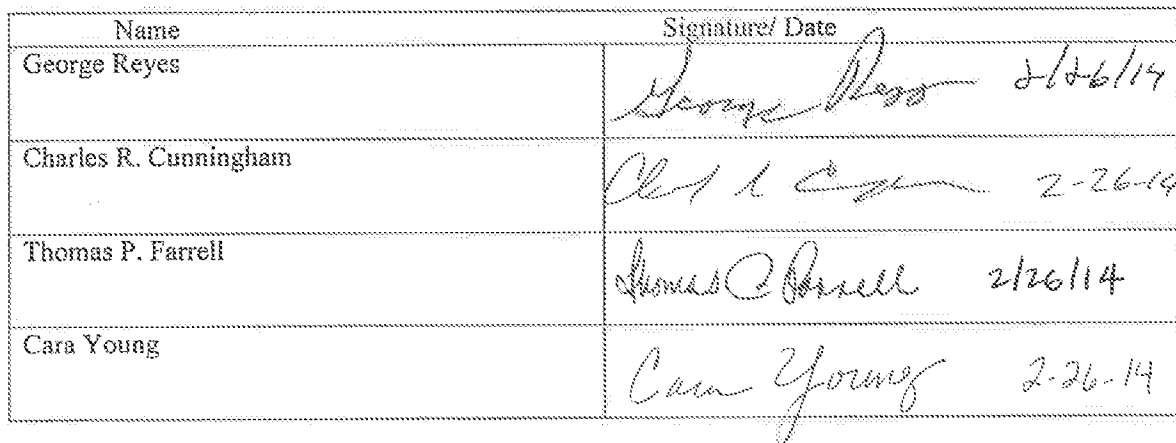 Name Signature/ Date
George Reyes George Reyes 2/26/14
Charles R. Cunningham 2-26-14
Thomas P. Farrell Thomas P Farrell 2/26/14
Cara Young Cara Young 2-26-14